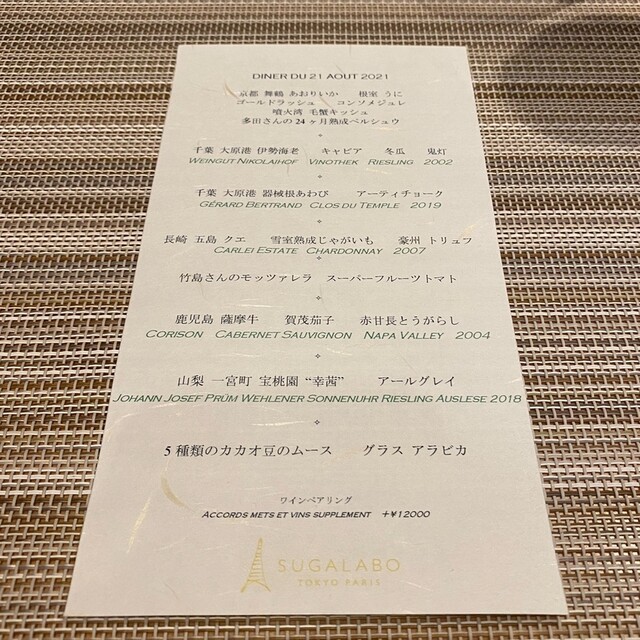 DINER DU 21 AOUT 2021
京都 舞鶴 あおりいか 根室 うに
ゴールドラッシュ コンソメジュレ
噴火湾 毛蟹キッシュ
多田さんの24ヶ月熟成ペルシュウ
千葉 大原港 伊勢海老 キャビア 冬瓜 鬼灯
WEINGUT NIKOLAIHOF VINOTHEK RIESLING 2002
千葉 大原港 器械根あわび アーティチョーク
GÉRARD BERTRAND CLOS DU TEMPLE 2019
長崎 五島 クエ 雪室熟成じゃがいも 豪州 トリュフ
CARLEI ESTATE CHARDONNAY 2007
竹島さんのモッツァレラ スーパーフルーツトマト
鹿児島 薩摩牛 賀茂茄子 赤甘長とうがらし
CORISON CABERNET SAUVIGNON NAPA VALLEY 2004
山梨 一宮町 宝桃園 “幸茜” アールグレイ
JOHANN JOSEF PRÜM WEHLENER SONNENUHR RIESLING AUSLESE 2018
5種類のカカオ豆のムース グラス アラビカ
ワインペアリング
ACCORDS METS ET VINS SUPPLEMENT +¥12000
SUGALABO
TOKYO PARIS